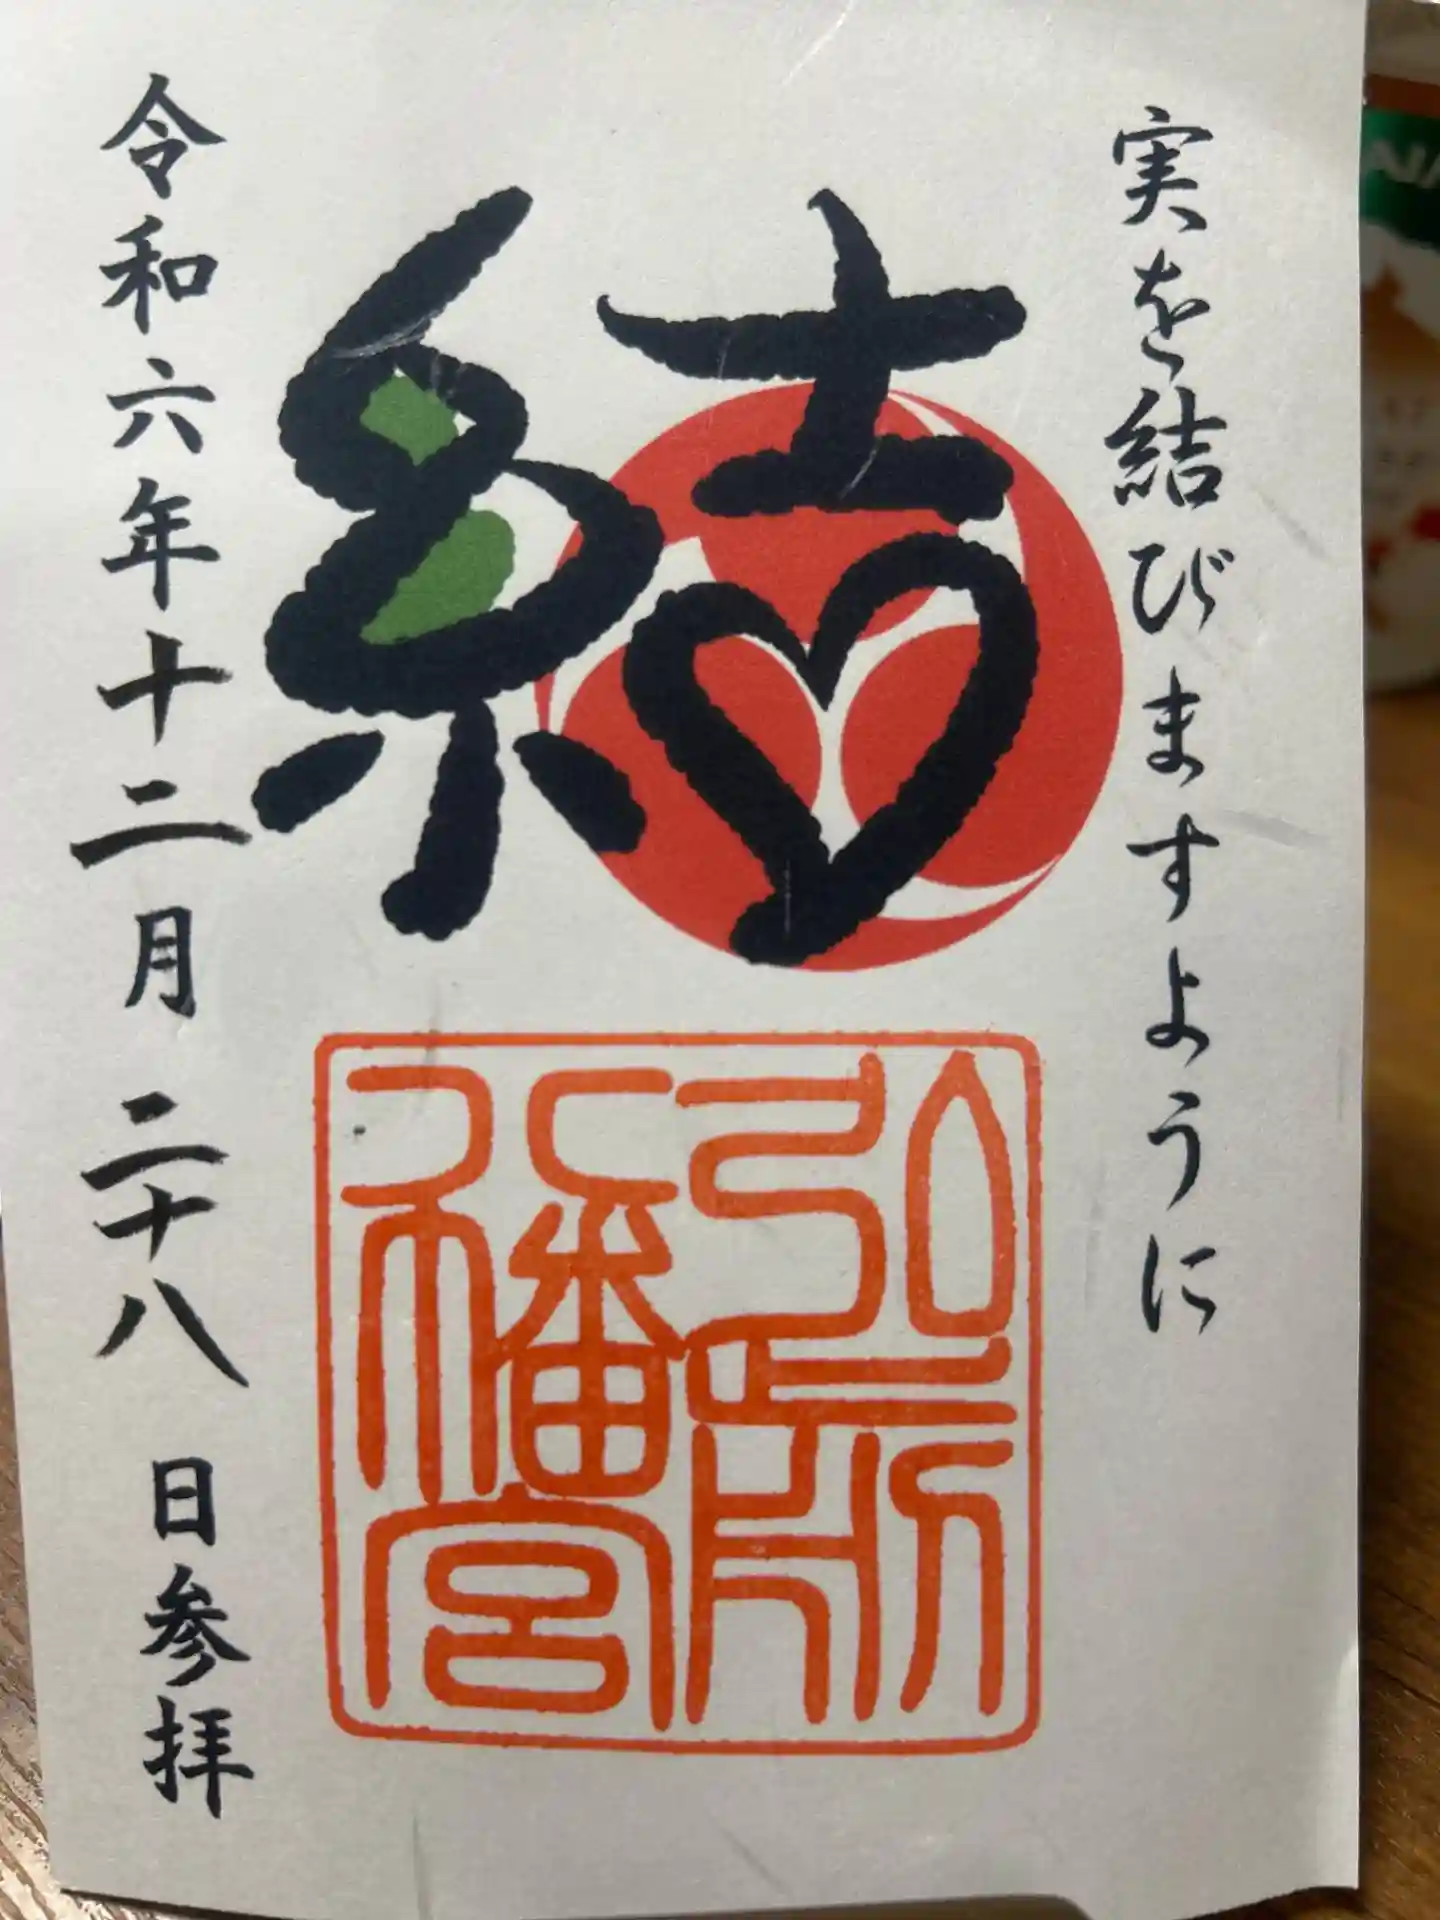 実を結びますように
結
弘前
八幡宮
令和六年十二月二十八日参拝